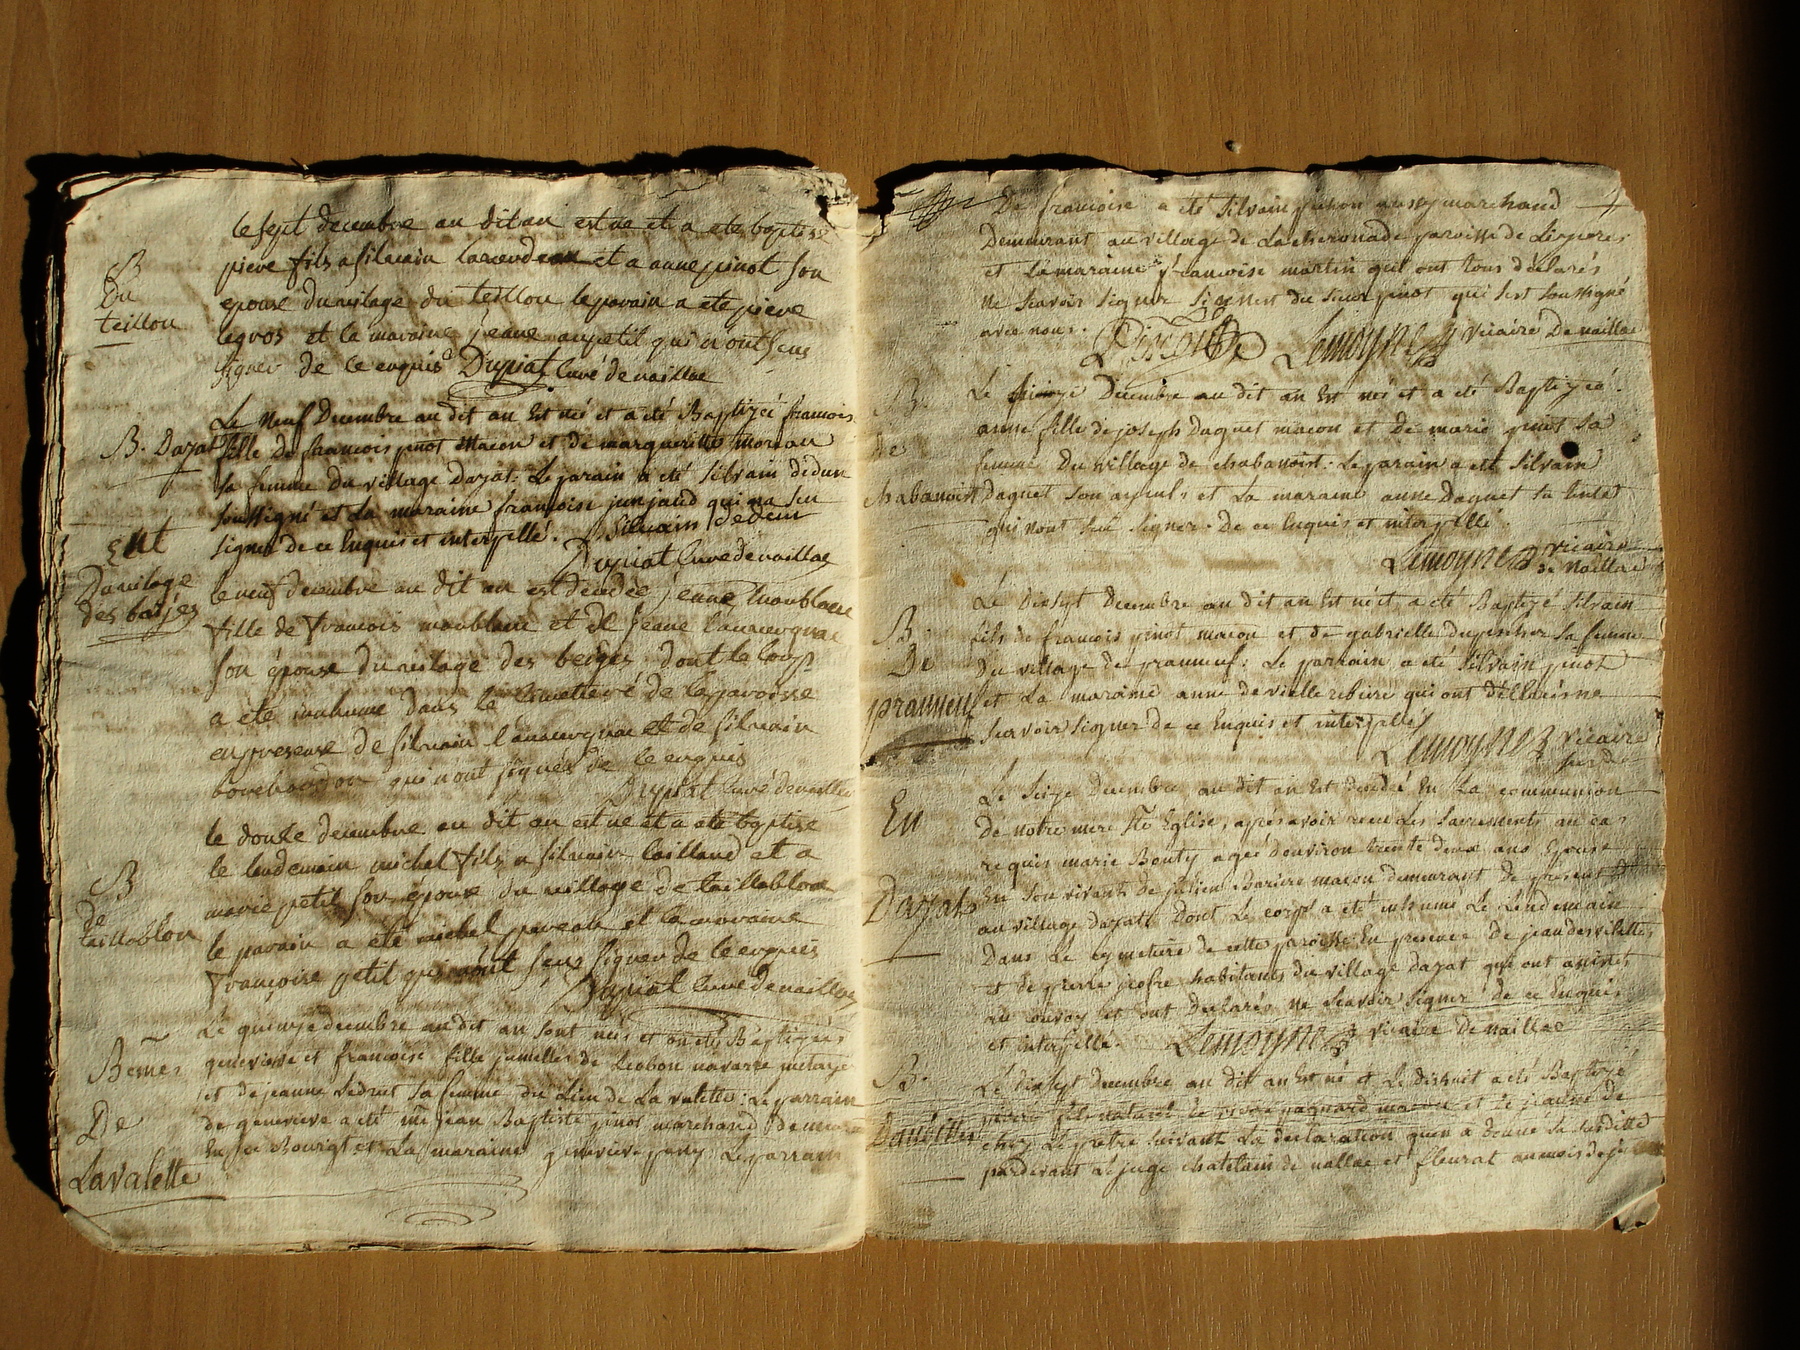 le sept decembre au dit an est ne et a ete baptisé
B
Du
teillou
pieve fils a silvain et a anne pinot son
epouse du vilage du teillou le pavain a ete pieve
legros et la maraine jeane aupetit qui n'ont seus
signer de ce enquis Dupiat Curé de naillac
Le neuf Decembre au dit an Est née et a été Baptizéé francois
B. Dazat fille de francois pinot Macon et de margueritte moreau
sa femme Du village Dazat: Le parain a été Silvain dedun
soussigné et La maraine francoise junjaud qui na seu
signer de ce Enquis et interpellé. Silvain Dedeun
Dupiat Curé de naillac
Ent
Du vilage
des barjes
le neuf decembre au dit an est décédée jeanne maublanc
fille de francois maublanc et de jeane
son épouse du vilage des berges dont le corp
a été inhumé dans le cimettere de la paroisse
en presence de silvain et de silvain
qui n'ont signés de ce enquis
Dupiat Curé de naillac
B
de
taillablou
le douse decembre au dit an est ne et a ete baptise
le lendemain michel fils a silvain Caillaud et a
marie petit son epouse du village de taillablou
le pavain a été michel paveau et la maraine
francoise petit qui n'ont seus signer de ce enquis
Dupiat Curé de naillac
B eme
De
Lavalette
Le quinze decembre au dit an sont neés et ont été Baptizéés
genevieve et francoise fille jumelles de Leobon navarre metayer
et de jeanne Ledrut sa femme du Lieu de La valette: Le parrain
de genevieve a été jean Baptiste pinot marchand Demeurant
En ce Bourg et La maraine genevieve Le parrain
De francoise a été Silvain pichon aussy marchand
Demeurant au village de La cheronade paroisse de
et La maraine francoise martin qui ont tous déclarés
ne scavoir signer si nest du sieur pinot qui sest soussigné
avec nous. Pinot Lemoyne vicaire De naillac
B.
de
chabanoist
Le Decembre au dit an Est née et a été Baptizéé
anne fille de joseph Daguet macon et De marie pinot sa
femme Du village de chabanoist: Le parain a été Silvain
Daguet son ayeul: et La maraine anne Daguet sa tante
qui nont seu signer. De ce Enquis et interpellé.
Lemoyne vicaire
de Naillac
B.
De
pranneuf
Le Dixsept Decembre au dit an Est né et a été Baptizé Silvain
fils de francois pinot macon et de gabrielle sa femme
du village de pranneuf: Le parrain a été Silvain pinot
et La maraine anne de qui ont déclarés ne
scavoir signer de ce Enquis et interpellés
Lemoyne vicaire
En
Dazat
Le Seize Decembre au dit an Est Decedée En La communion
de notre mere Ste Eglise, après avoir recu Les sacrements au cas
requis marie Bouty ageé d'environ trente deux ans Epouse
En son vivant de julien Bariere macon demeurant de present
au village dazat. Dont Le corps a été inhumé Le Lendemain
Dans Le cymetiere de cette paroisse En presence De jean desvilettes
et de pierre jeofre habitants du village dazat qui ont assistés
au convoy et ont Declarés ne scavoir signer de ce Enquis
et interpellé. Lemoyne vicaire de naillac
B.
Le dixsept Decembre au dit an Est né et Le dixhuit a été Baptizé
pierre fils naturel de macon et de jeanne de
chez Le pretre suivant La declaration quen a donné La susditte
pardevant Le juge chatelain de nallac et fleurat au mois de